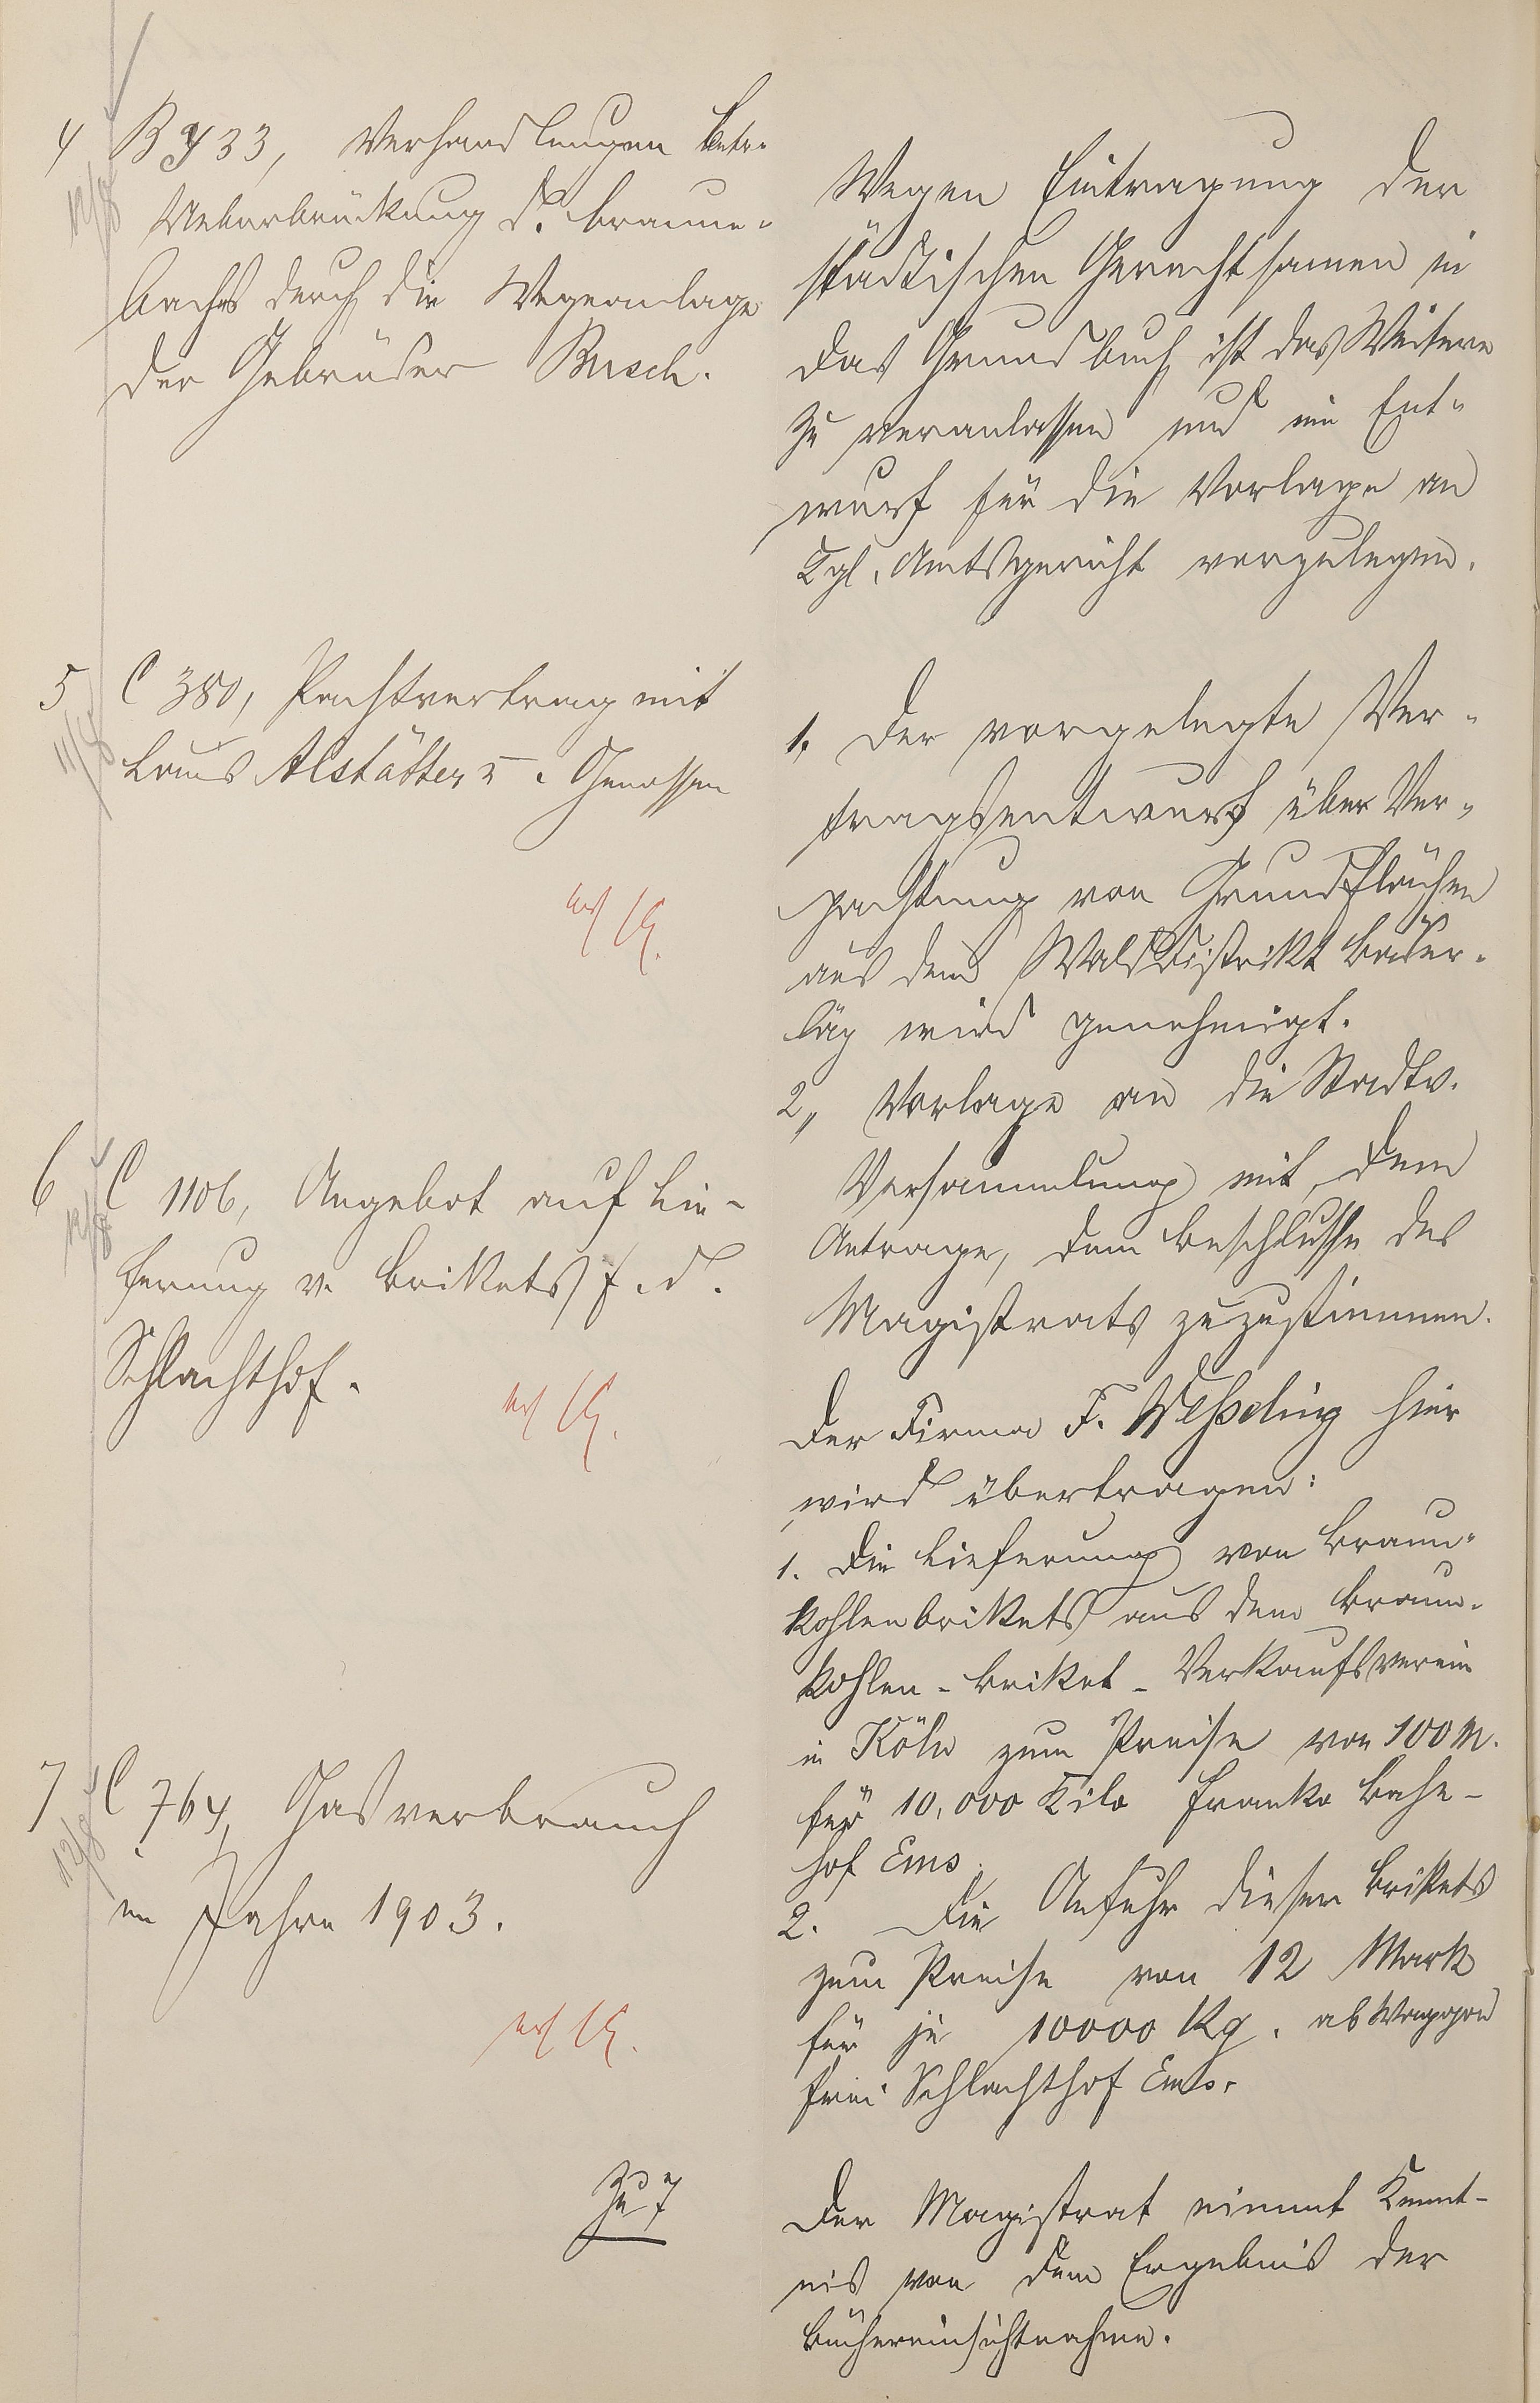 4
12/8
B 933, Verhandlungen betr.
Ueberbrückung d. Braune-
baches durch die Wegeanlage
der Gebrüder Busch.
Wegen Eintragung der
städtischen Gerechtsamen in
das Grundbuch ist das Weitere
zu veranlassen und ein Ent-
wurf für die Vorlage an
Kgl. Amtsgericht vorzulegen.
5
11/8
C 380, Pachtvertrag mit
Louis Alstätter u. Genossen
1. Der vorgelegte Ver-
tragsentwurf über Ver-
pachtung von Grundflächen
aus dem Walddistrikt Bäder-
läy wird genehmigt.
2, Vorlage an die Stadtv.
Versammlung mit dem
Antrage, dem Beschlusse des
Magistrats zuzustimmen.
6
12/8
C 1106, Angebot auf Lie-
ferung v. Brikets f. d.
Schlachthof.
Der Firma F. Weßeling hier
wird übertragen:
1. Die Lieferung von Braun-
kohlenbrikets aus dem Braun-
kohlen-Briket-Verkaufsverein
in Köln zum Preise von 100 M.
für 10,000 Kilo franko Bahn-
hof Ems.
2. Die Anfuhr dieser Brikets
zum Preise von 12 Mark
für je 10000 Kg. ab Waggon
frei Schlachthof Ems.
7
12/8
C 764, Gasverbrauch
im Jahre 1903.
Zu 7
Der Magistrat nimmt Kennt-
nis von dem Ergebnis der
Büchereinsichtnahme.